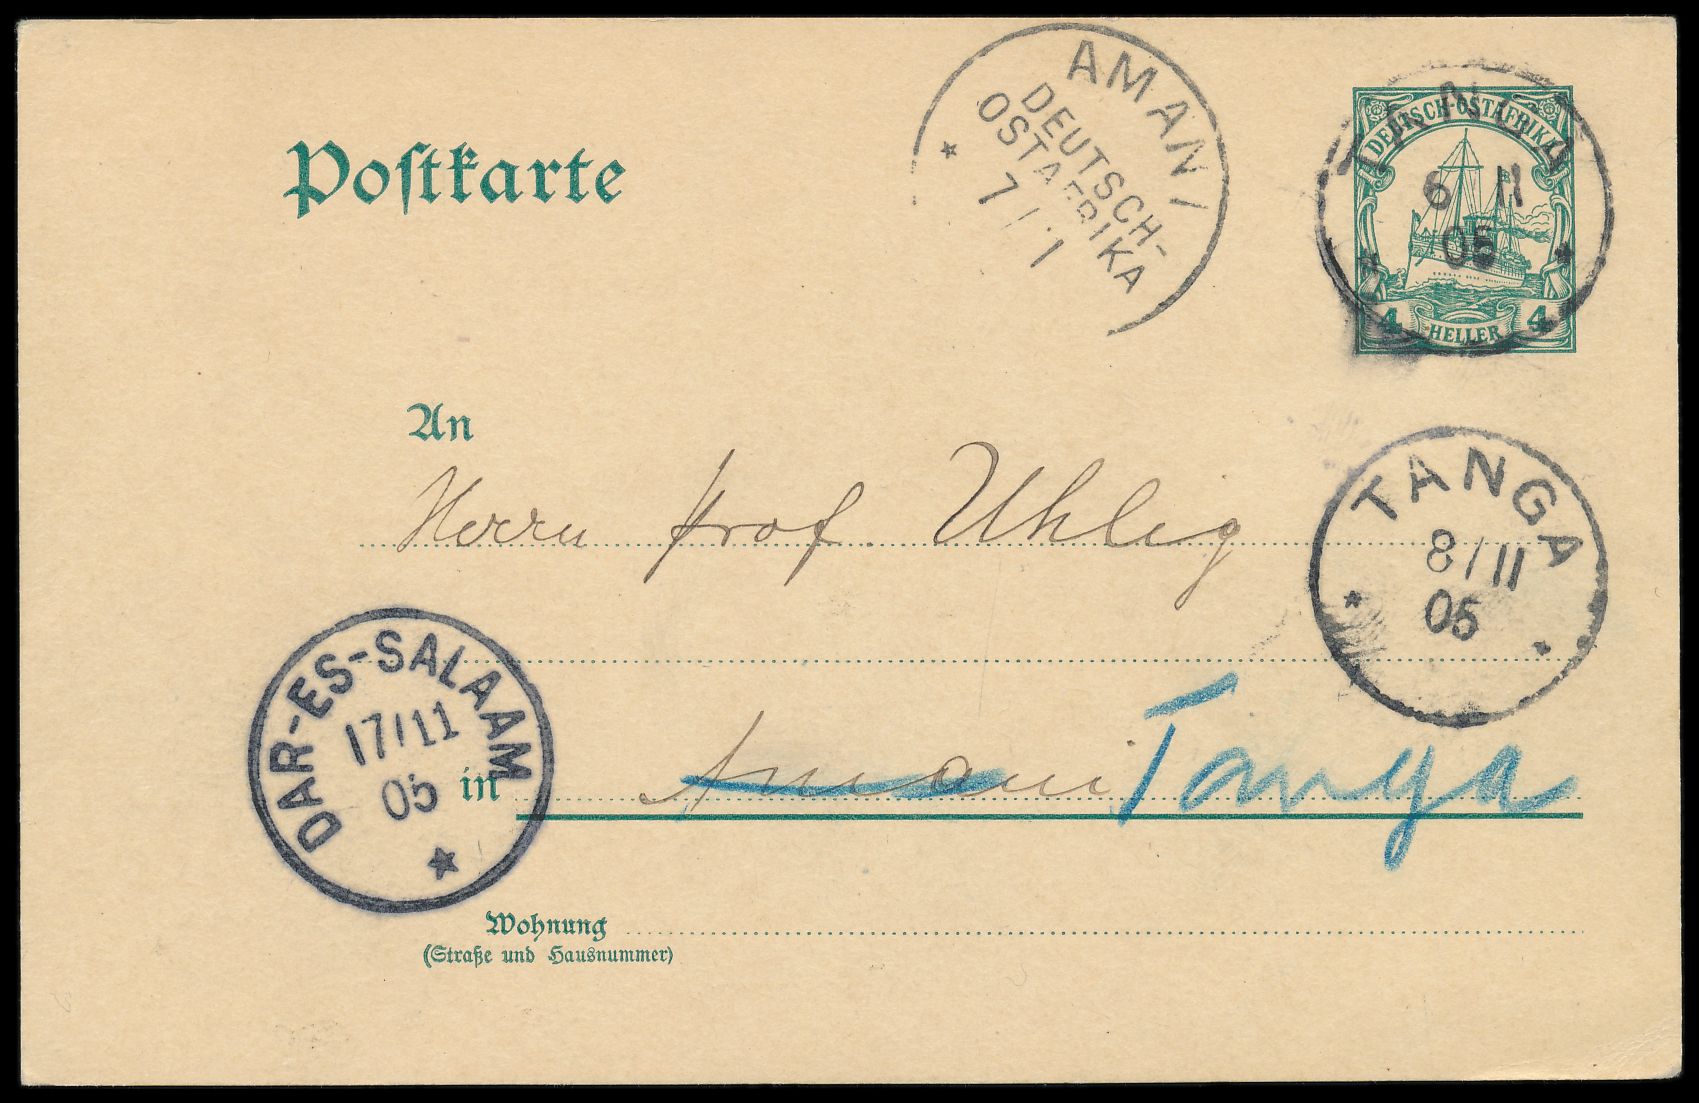 AMANI
DEUTSCH-
OSTAFRIKA
7/.1
TANGA
6 11
05
DEUTSCH-OSTAFRIKA
4 HELLER 4
Postkarte
An
Herrn Prof. Uhlig
TANGA
8/11
05
DAR-ES-SALAAM
17/11
05
in Amani Tanga
Wohnung
(Straße und Hausnummer)